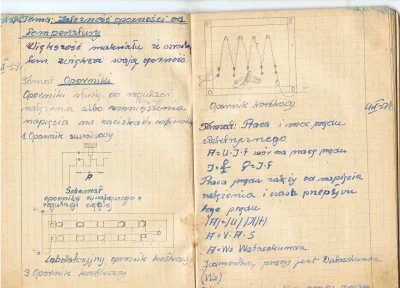 Temat: Zależność oporności od
temperatury
Większość materiału ze wzrostem
tem. zwiększa swoją oporność
Temat: Oporniki
Oporniki służą do regulacji
natężenia albo zmniejszenia
napięcia na zaciskach odbiornika
1. Opornik suwakowy
P
Schemat
opornika suwakowego o
regulacji ciągłej
Laboratoryjny opornik korkowy
3. Opornik korbkowy
Opornik korbkowy
Temat: Praca i moc prądu
elektrycznego
A=U·I·t wzór na pracę prądu
Praca prądu zależy od napięcia
natężenia i czasu przepływu
tego prądu
|A|=|U| |I| |t|
A=V·A·S
A=Ws Watosekunda
Jednostką pracy jest Watosekunda
(Ws)